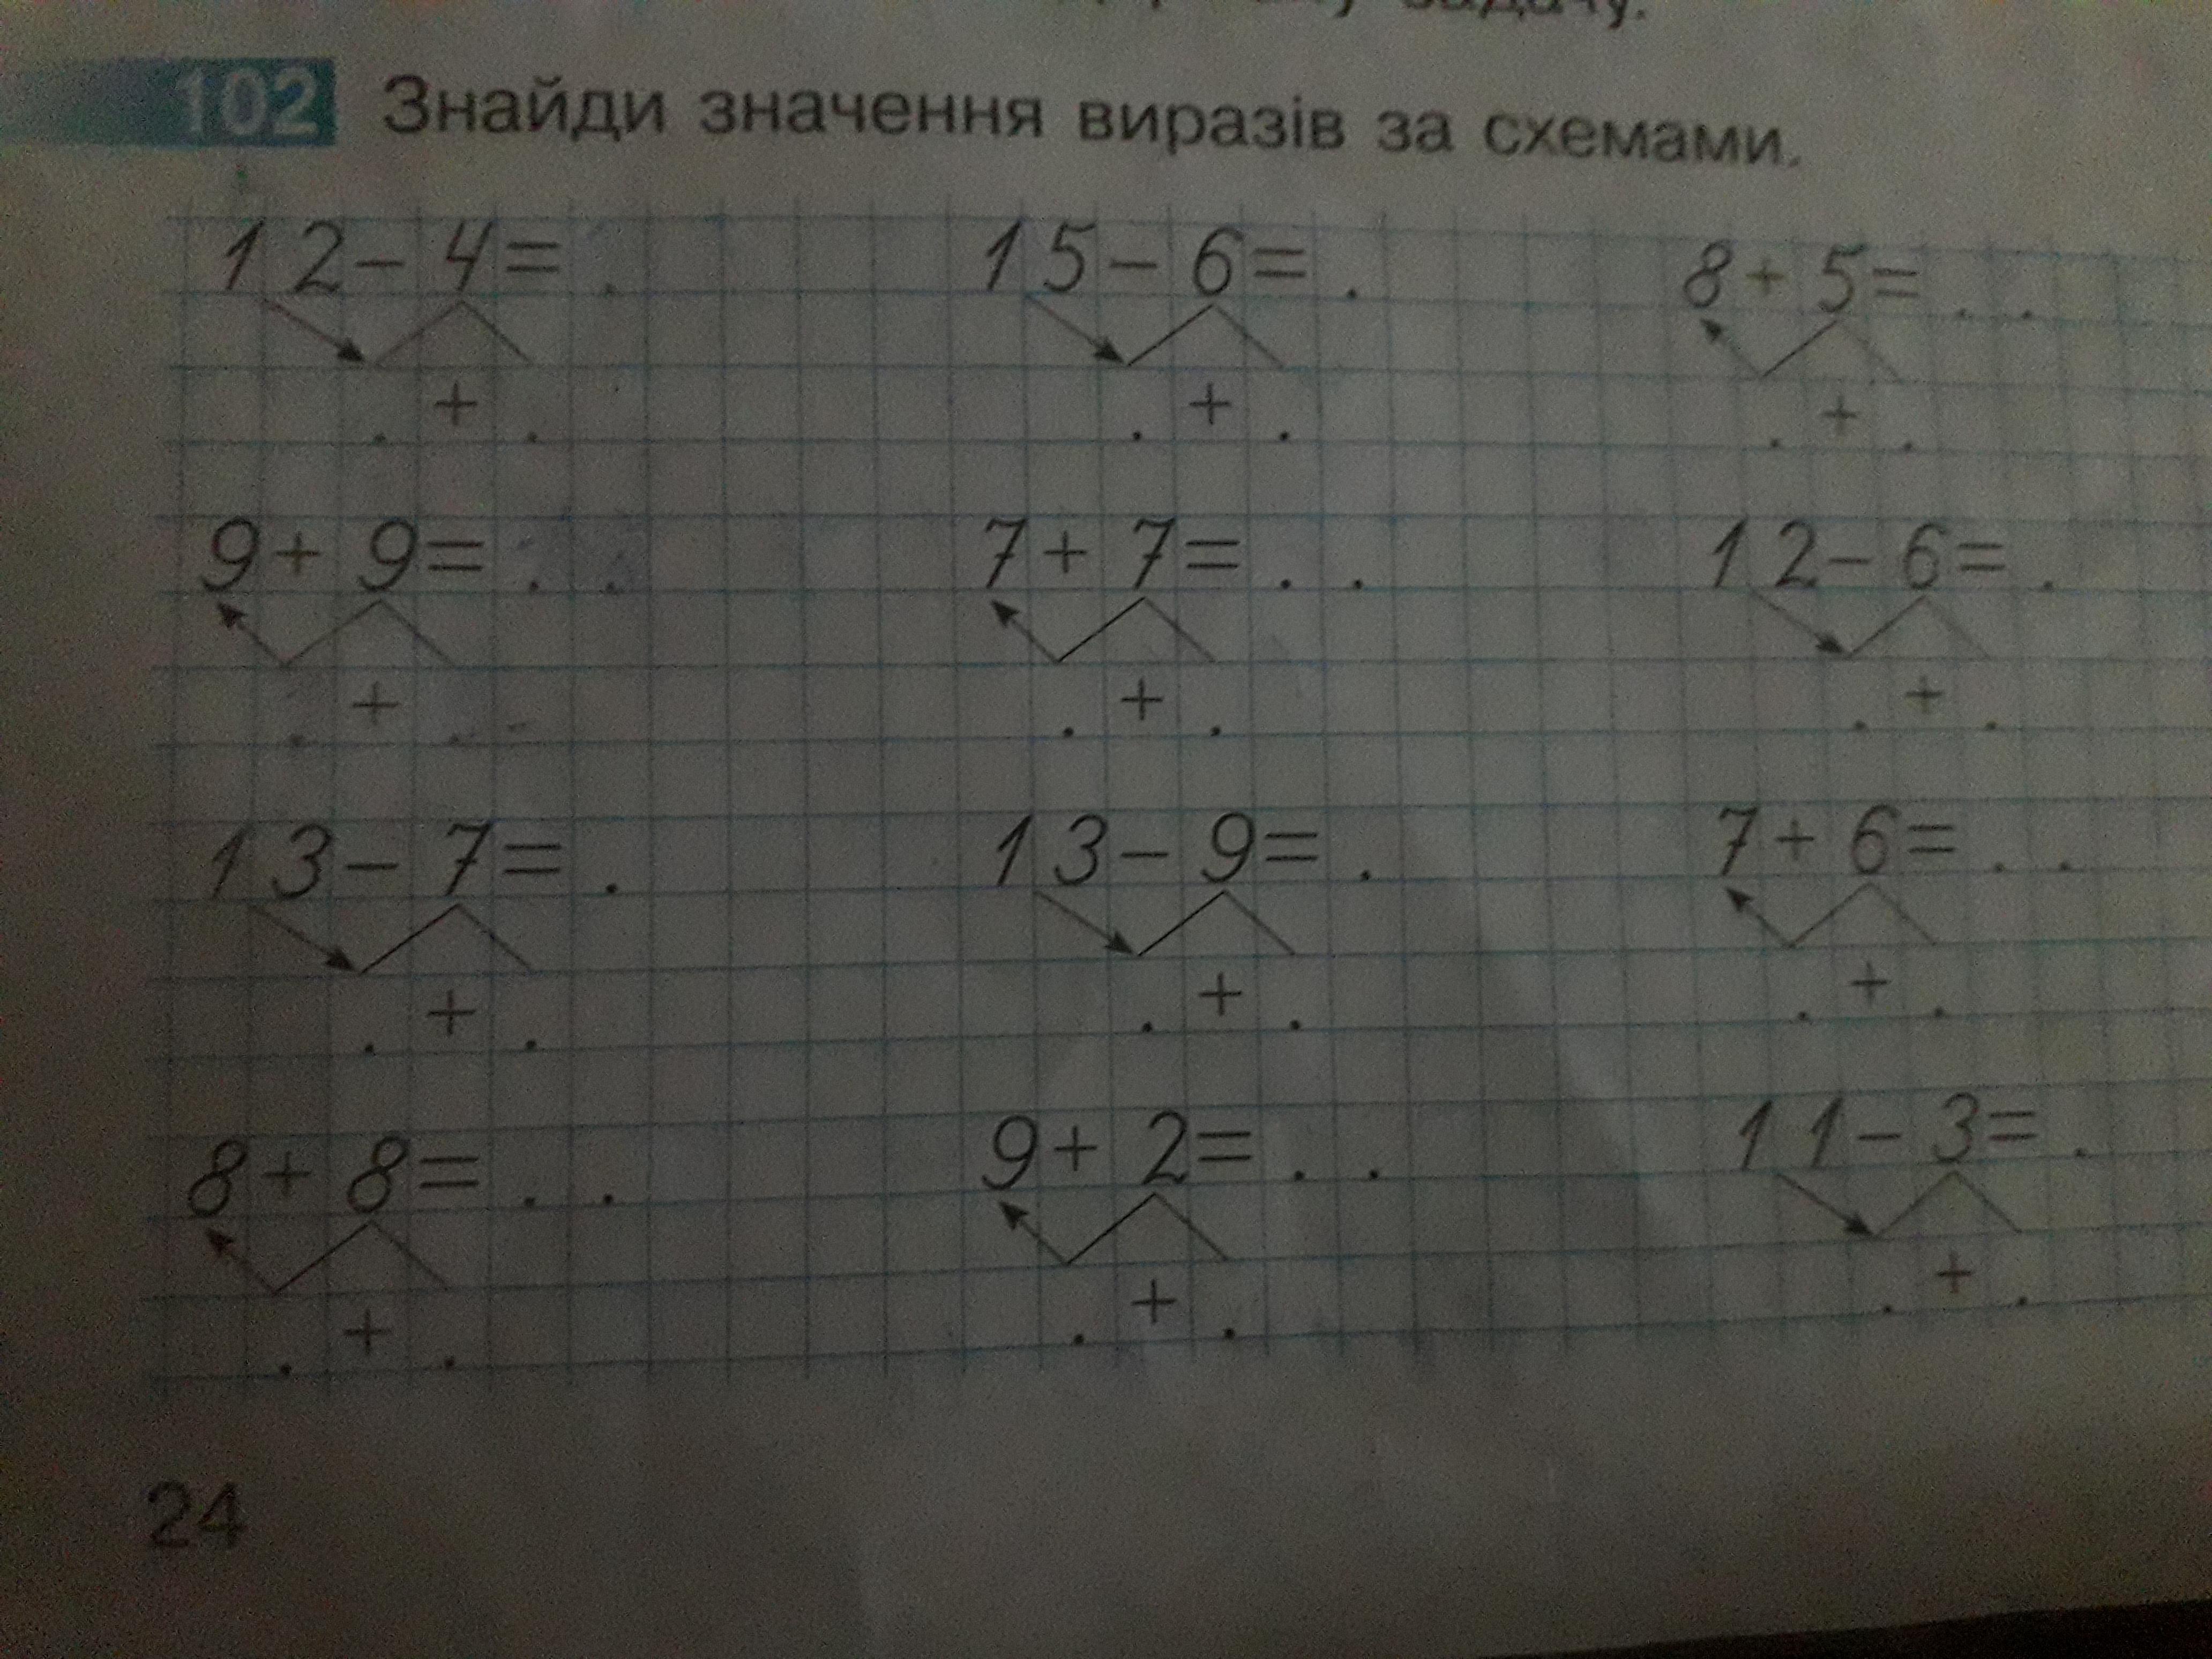 задачу.
102 Знайди значення виразів за схемами.
12-4=. 15-6=. 8+5=..
.+. .+. .+.
9+9=.. 7+7=.. 12-6=.
.+. .+. .+.
13-7=. 13-9=. 7+6=..
.+. .+. .+.
8+8=.. 9+2=.. 11-3=.
.+. .+. .+.
24